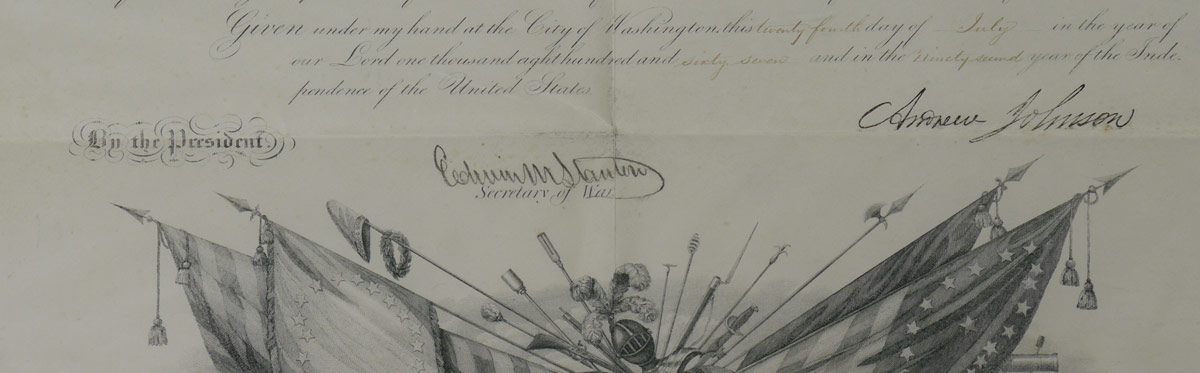 Given under my hand at the City of Washington, this twenty fourth day of July in the year of
our Lord one thousand eight hundred and sixty seven and in the ninety second year of the Inde-
pendence of the United States.
Andrew Johnson
By the President,
Edwin M Stanton
Secretary of War